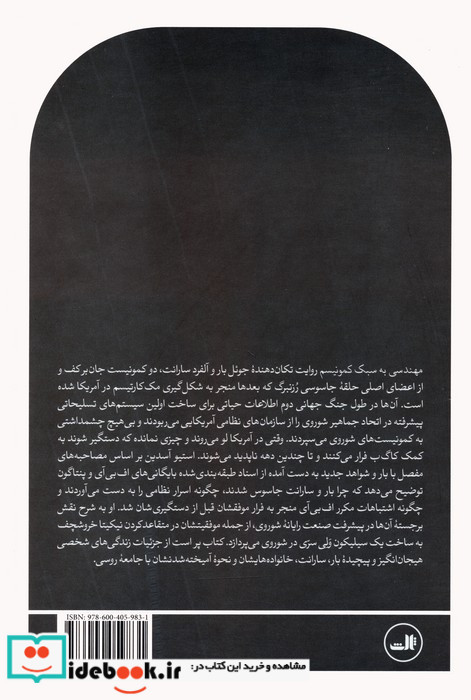 مهندسی به سبک کمونیسم روایت تکان‌دهندهٔ جوئل بار و آلفرد سارانت، دو کمونیست جان‌برکف و
از اعضای اصلی حلقهٔ جاسوسی رُزنبرگ که بعدها منجر به شکل‌گیری مک‌کارتیسم در آمریکا شده
است. آن‌ها در طول جنگ جهانی دوم اطلاعات حیاتی برای ساخت اولین سیستم‌های تسلیحاتی
پیشرفته در اتحاد جماهیر شوروی را از سازمان‌های نظامی آمریکایی می‌ربودند و بی‌هیچ چشمداشتی
به کمونیست‌های شوروی می‌سپردند. وقتی در آمریکا لو می‌روند و چیزی نمانده که دستگیر شوند به
کمک کاگ‌ب فرار می‌کنند و تا چندین دهه ناپدید می‌شوند. استیو آسدین بر اساس مصاحبه‌های
مفصل با بار و شواهد جدید به دست آمده از اسناد طبقه‌بندی شده بایگانی‌های اف‌بی‌آی و پنتاگون
توضیح می‌دهد که چرا بار و سارانت جاسوس شدند، چگونه اسرار نظامی را به دست می‌آوردند و
چگونه اشتباهات مکرر اف‌بی‌آی منجر به فرار موفقشان قبل از دستگیری‌شان شد. او به شرح نقش
برجستهٔ آن‌ها در پیشرفت صنعت رایانهٔ شوروی، از جمله موفقیتشان در متقاعدکردن نیکیتا خروشچف
به ساخت یک سیلیکون وَلی سرّی در شوروی می‌پردازد. کتاب پر است از جزئیات زندگی‌های شخصی
هیجان‌انگیز و پیچیدهٔ بار، سارانت، خانواده‌هایشان و نحوهٔ آمیخته‌شدنشان با جامعهٔ روسی.
ISBN: 978-600-405-983-1
ثالث
مشاهده و خرید این کتاب در:
idebook.ir